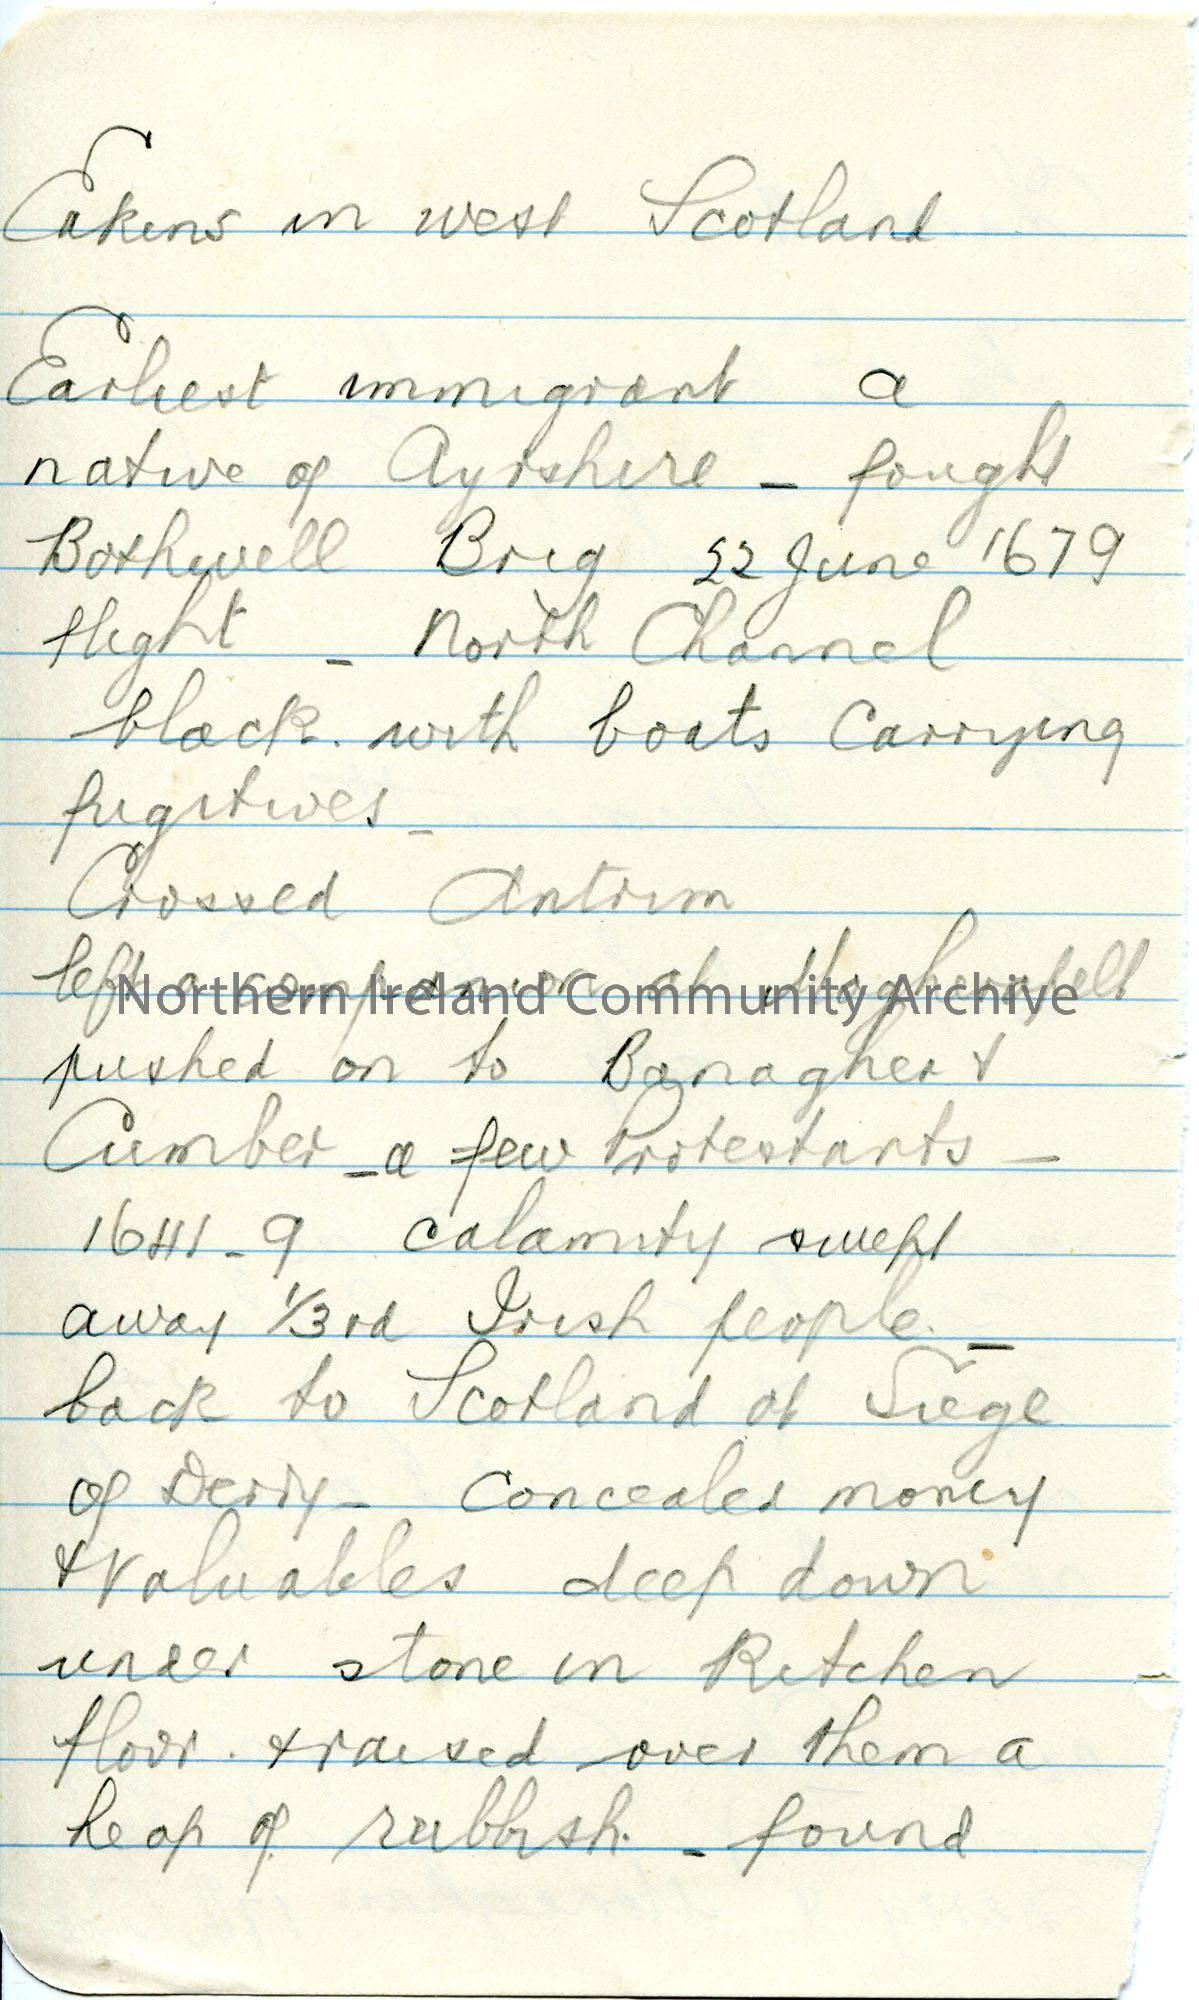 Eakins in west Scotland
Earliest immigrant a
native of Ayrshire – fought
Bothwell Brig 22 June 1679
flight – North Channel
black. with boats carrying
fugitives –
Crossed Antrim
left a companion at Magherafelt
Northern Ireland Community Archive
pushed on to Banagher &
Cumber – a few Protestants –
1641 – 9 calamity swept
away 1/3rd Irish people. –
back to Scotland at Siege
of Derry – Concealed money
& valuables deep down
under stone in Kitchen –
floor. & raised over them a
heap of rubbish. – found